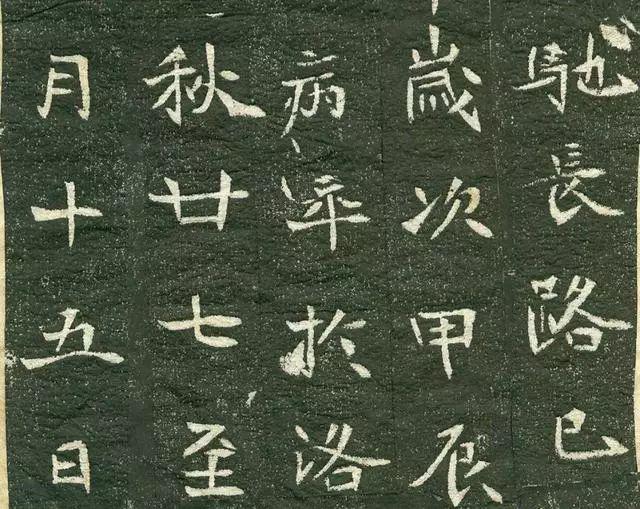 馳長路已
歲次甲辰
病卒於洛
秋廿七至
月十五日